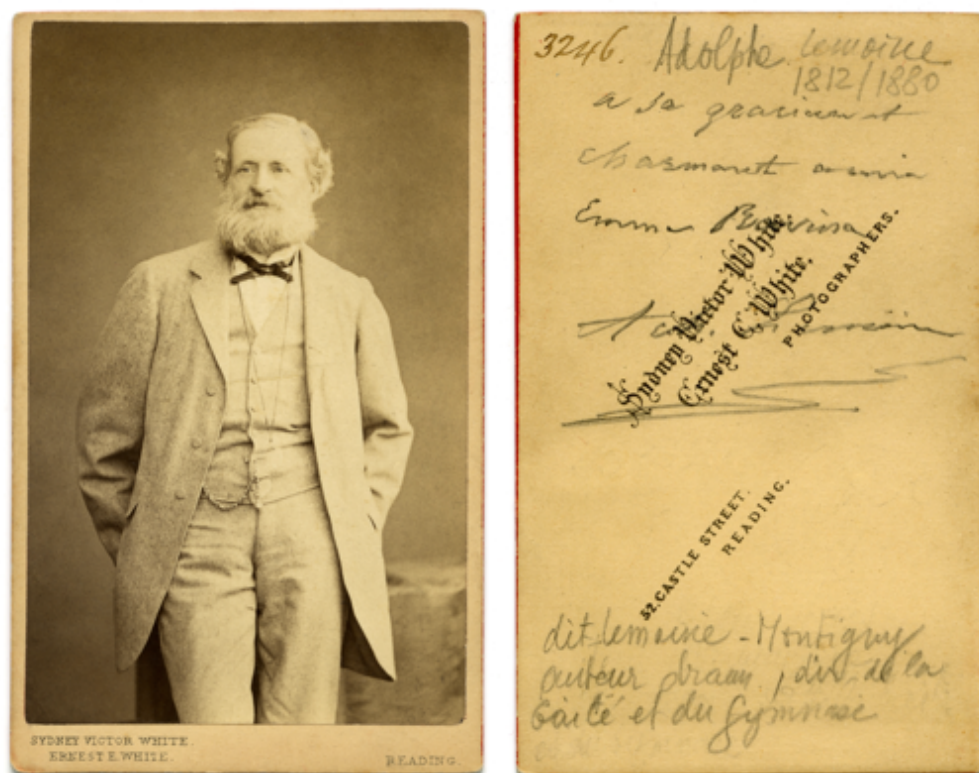 SYDNEY VICTOR WHITE.
ERNEST E. WHITE.
READING.
3246. Adolphe Lemoine
1812/1880
a sa gracieuse et
charmante amie
Emma
Sydney Victor White.
Ernest E. White.
PHOTOGRAPHERS.
52. CASTLE STREET.
READING.
dit Lemoine-Montigny
auteur dram, dir. de la
Gaîté et du Gymnase